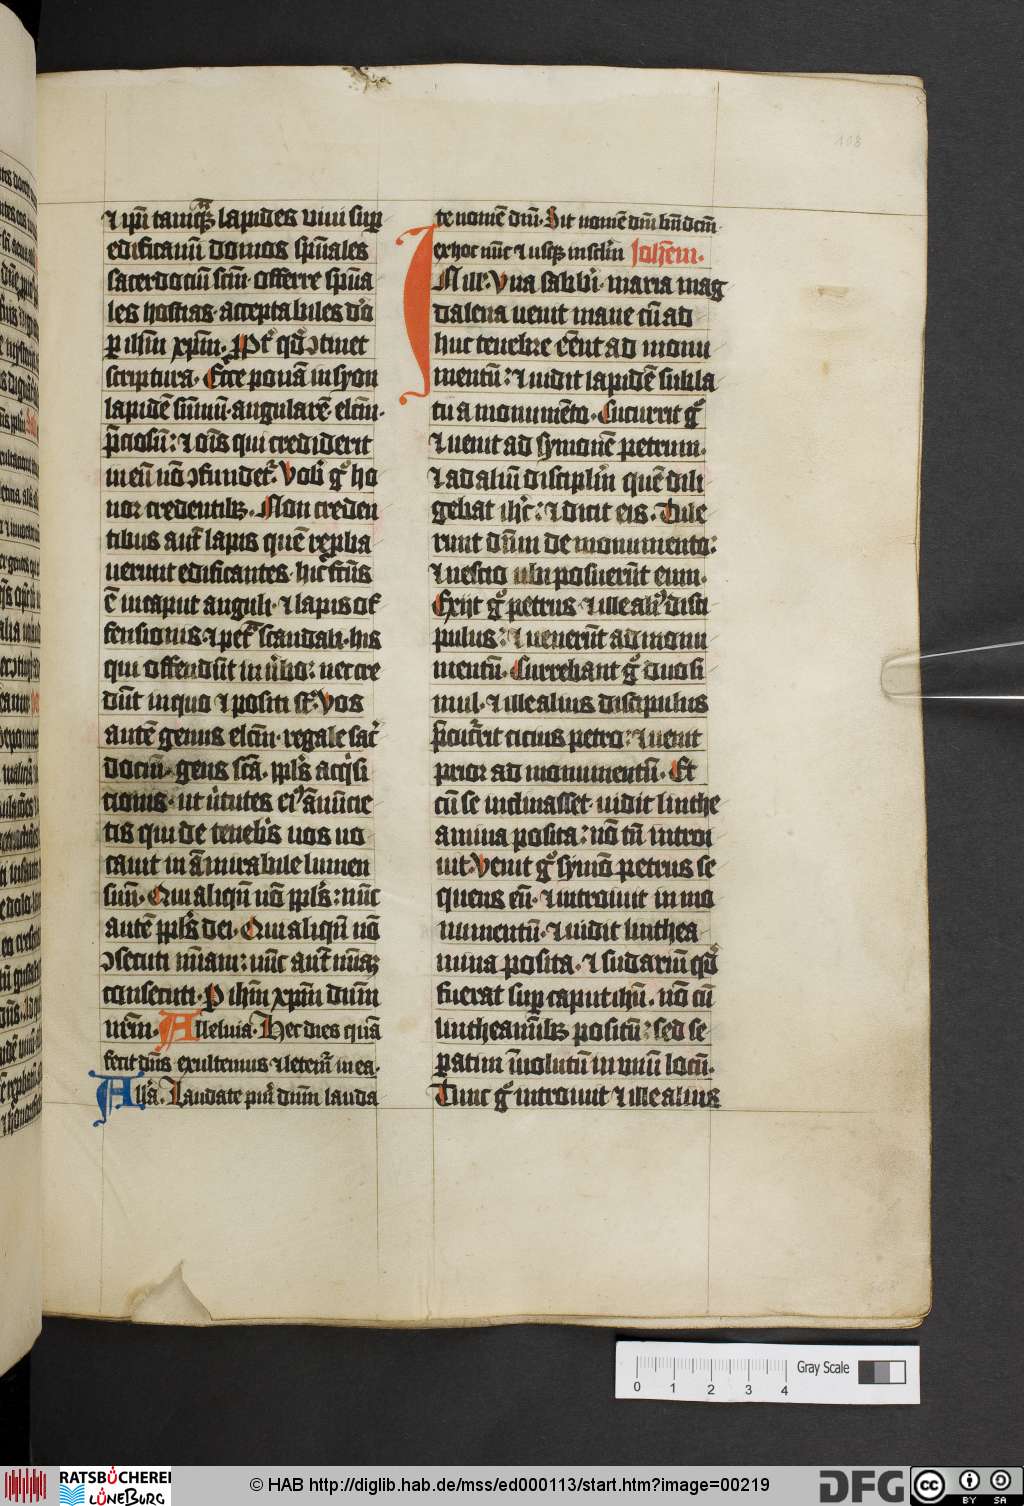 108
⁊ ip̄i tamq̄ lapides uiui sup
edificam̄ domos sp̄uales
sacerdociū sc̄m · offerre sp̄ua
les hostias · acceptabiles d̓o
ꝑ ihm̄ xpm̄ · Ꝓpt̓ qd̓ ꝯtinet
scriptura · Ecce ponā in syon
lapidē sūmū · angularē · elc̄m ·
p̄ciosū : ⁊ oīs qui crediderit
in eū nō ꝯfundet᷑ · Vob̓ gͦ ho
nor credentib; · Non creden
tibus aut̄ lapis quē rep̄ba
uerunt edificantes · hic fc̄us
ē in caput anguli · ⁊ lapis of
fensionis · ⁊ pet̓ scandali · his
qui offendūt in u̓bo : nec cre
dūt in quo ⁊ positi st̄ · Vos
autē genus elc̄m · regale sac̓
dociū · gens sc̄a · ppl̄s acq̓si
tionis · ut u̓tutes ei᷒ ānūcie
tis qui de teneb̓s uos uo
cauit in āmirabile lumen
suū · Qui aliqn̄ nō ppl̄s : nūc
autē ppl̄s dei · Qui aliqn̄ nō
ꝯsecuti mīam : nūc aut̄ mīaꝫ
consecuti · P ihm̄ xpm̄ dnm̄
nr̄m · Alleluia · Hec dies quā
fecit dn̄s exultemus ⁊ letem̄ in ea ·
All̓a · Laudate pu̓i dnm̄ lauda
te nomē dnī · Sit nomē dnī bn̄dcm̄
ex hoc nūc ⁊ usq; in sclm̄ Johēm ·
IN ill̓ · Una sabbi̓ · maria mag
dalena uenit mane cū ad
huc tenebre eēnt ad monu
mentū : ⁊ uidit lapidē subla
tū a monumēto · Cucurrit gͦ
⁊ uenit ad symonē petrum ·
⁊ ad aliū disciplm̄ quē dili
gebat ihc̄ : ⁊ dicit eis · Tule
runt dnm̄ de monumento :
⁊ nescio ubi posuerūt eum ·
Exijt gͦ petrus ⁊ ille ali᷒ disci
pulus : ⁊ uenerūt ad monu
mentū · Currebant gͦ duo si
mul · ⁊ ille alius discipulus
p̄cucr̓rit cicius petro : ⁊ uenit
prior ad monumentū · Et
cū se inclinasset · uidit linthe
amina posita : nō tn̄ introi
uit · Venit gͦ symō petrus se
quens eū · ⁊ introiuit in mo
numentū · ⁊ uidit linthea
mina posita · ⁊ sudariū qd̓
fuerat sup caput ihū · nō cū
linthaminib; positū : sed se
paratim īuolutū in unū locū ·
Tunc gͦ introiuit ⁊ ille alius
0 1 2 3 4
Gray Scale
RATSBÜCHEREI
LÜNEBURG
© HAB http://diglib.hab.de/mss/ed000113/start.htm?image=00219
DFG
cc BY SA